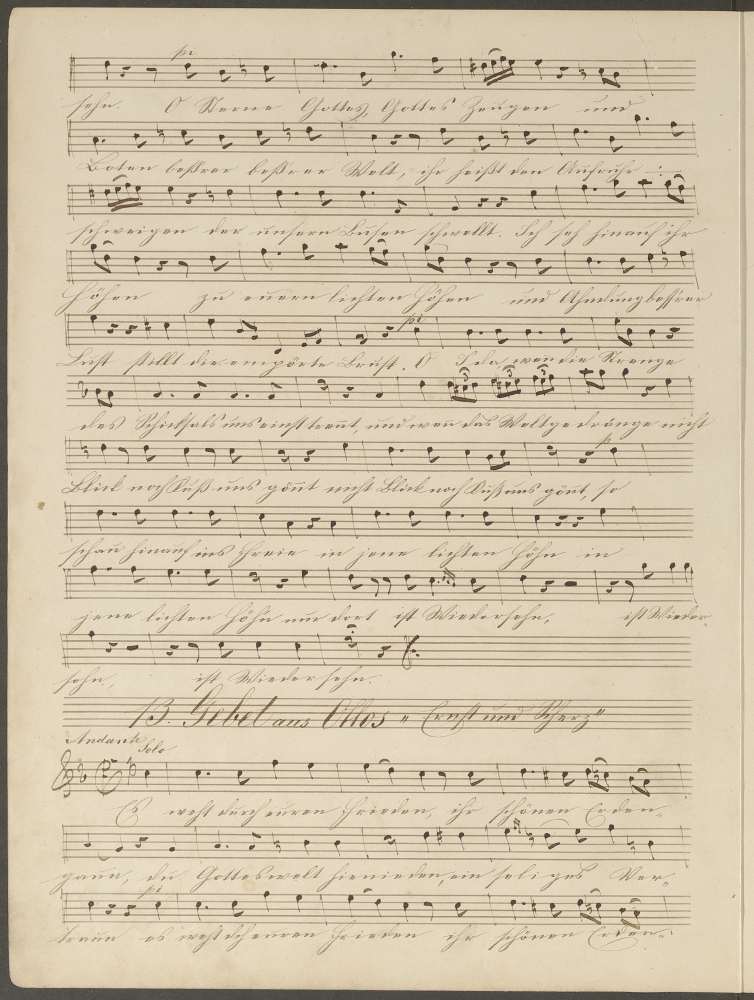 pi
sehn. O Sterne Gottes, Gottes Zeugen und
Boten beßrer beßrer Welt, ihr heißt den Aufruhr
schweigen der unsern Busen schwellt. Ich seh hinauf ihr
Höhen zu euern lichten Höhen und Ahndung bessrer
pi
Lust stillt die empörte Brust. O Ida, wen die Strenge
des Schicksals uns einst trent, und wen das Weltgedränge nicht
p
Blick noch Kuß uns gönt nicht Blick noch Kuß uns gönt, so
schau hinauf ins Freie in jene lichten Höhn in
jene lichten Höhn nur dort ist Wiedersehn, ist Wieder-
sehn, ist Wiedersehn.
13. Gebet aus Ottos "Ernst und Scherz"
Andante
Solo
Es weht durch euren Frieden, ihr schönen Erden-
gaun, die Gotteswelt hienieden, ein seliges Ver-
pi
traun es weht dch euren Frieden ihr schönen Erden-